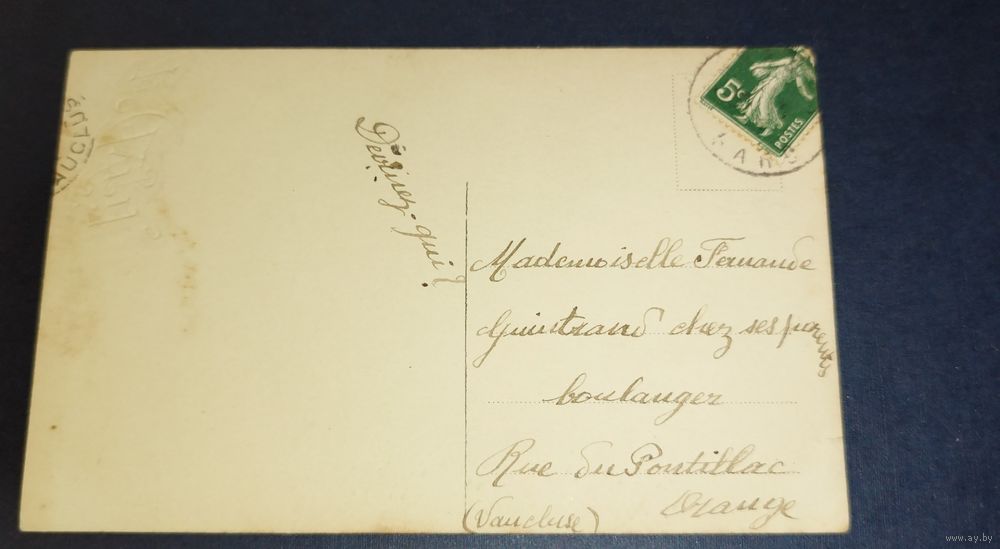 Devinez qui ?
5c
POSTES
Mademoiselle Fernande
Guintrand chez ses parents
boulanger
Rue du Pontillac
Orange
(Vaucluse)
www.ay.by